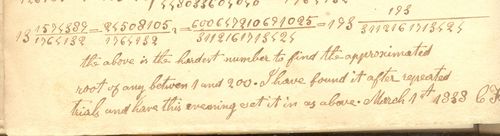 13 1574389/1764132 = 24508105/1764132, = 600647210691025/3112161713424 = 193 193/3112161713424
the above is the hardest number to find the approximated
root of any betwen 1 and 200. I have found it after repeated
trials and have this evening set it in as above. March 1st 1833